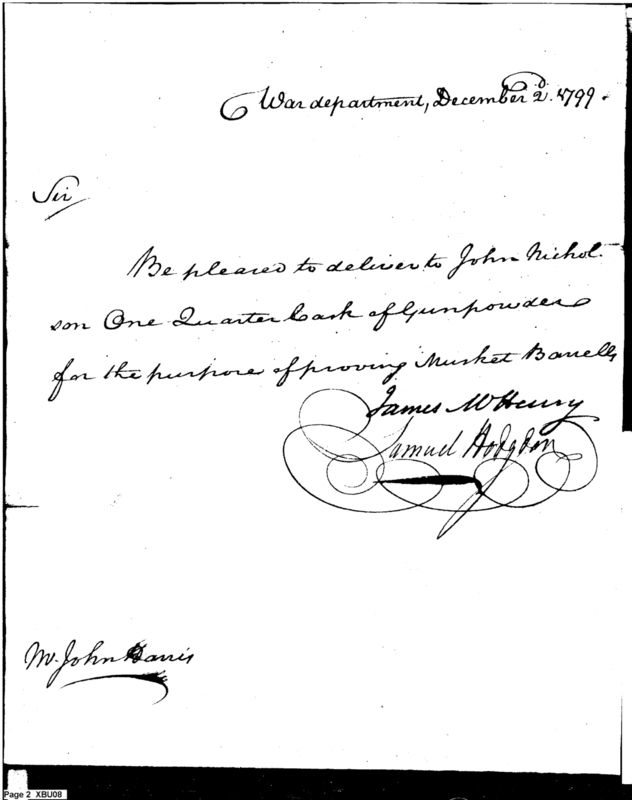 War department, December 2d. 1799.
Sir
Be pleased to deliver to John Nichol-
son One Quarter Cask of Gunpowder
for the purpose of proving Musket Barrells
James McHenry
Samuel Hodgdon
Mr. John Harris
Page 2 XBU08